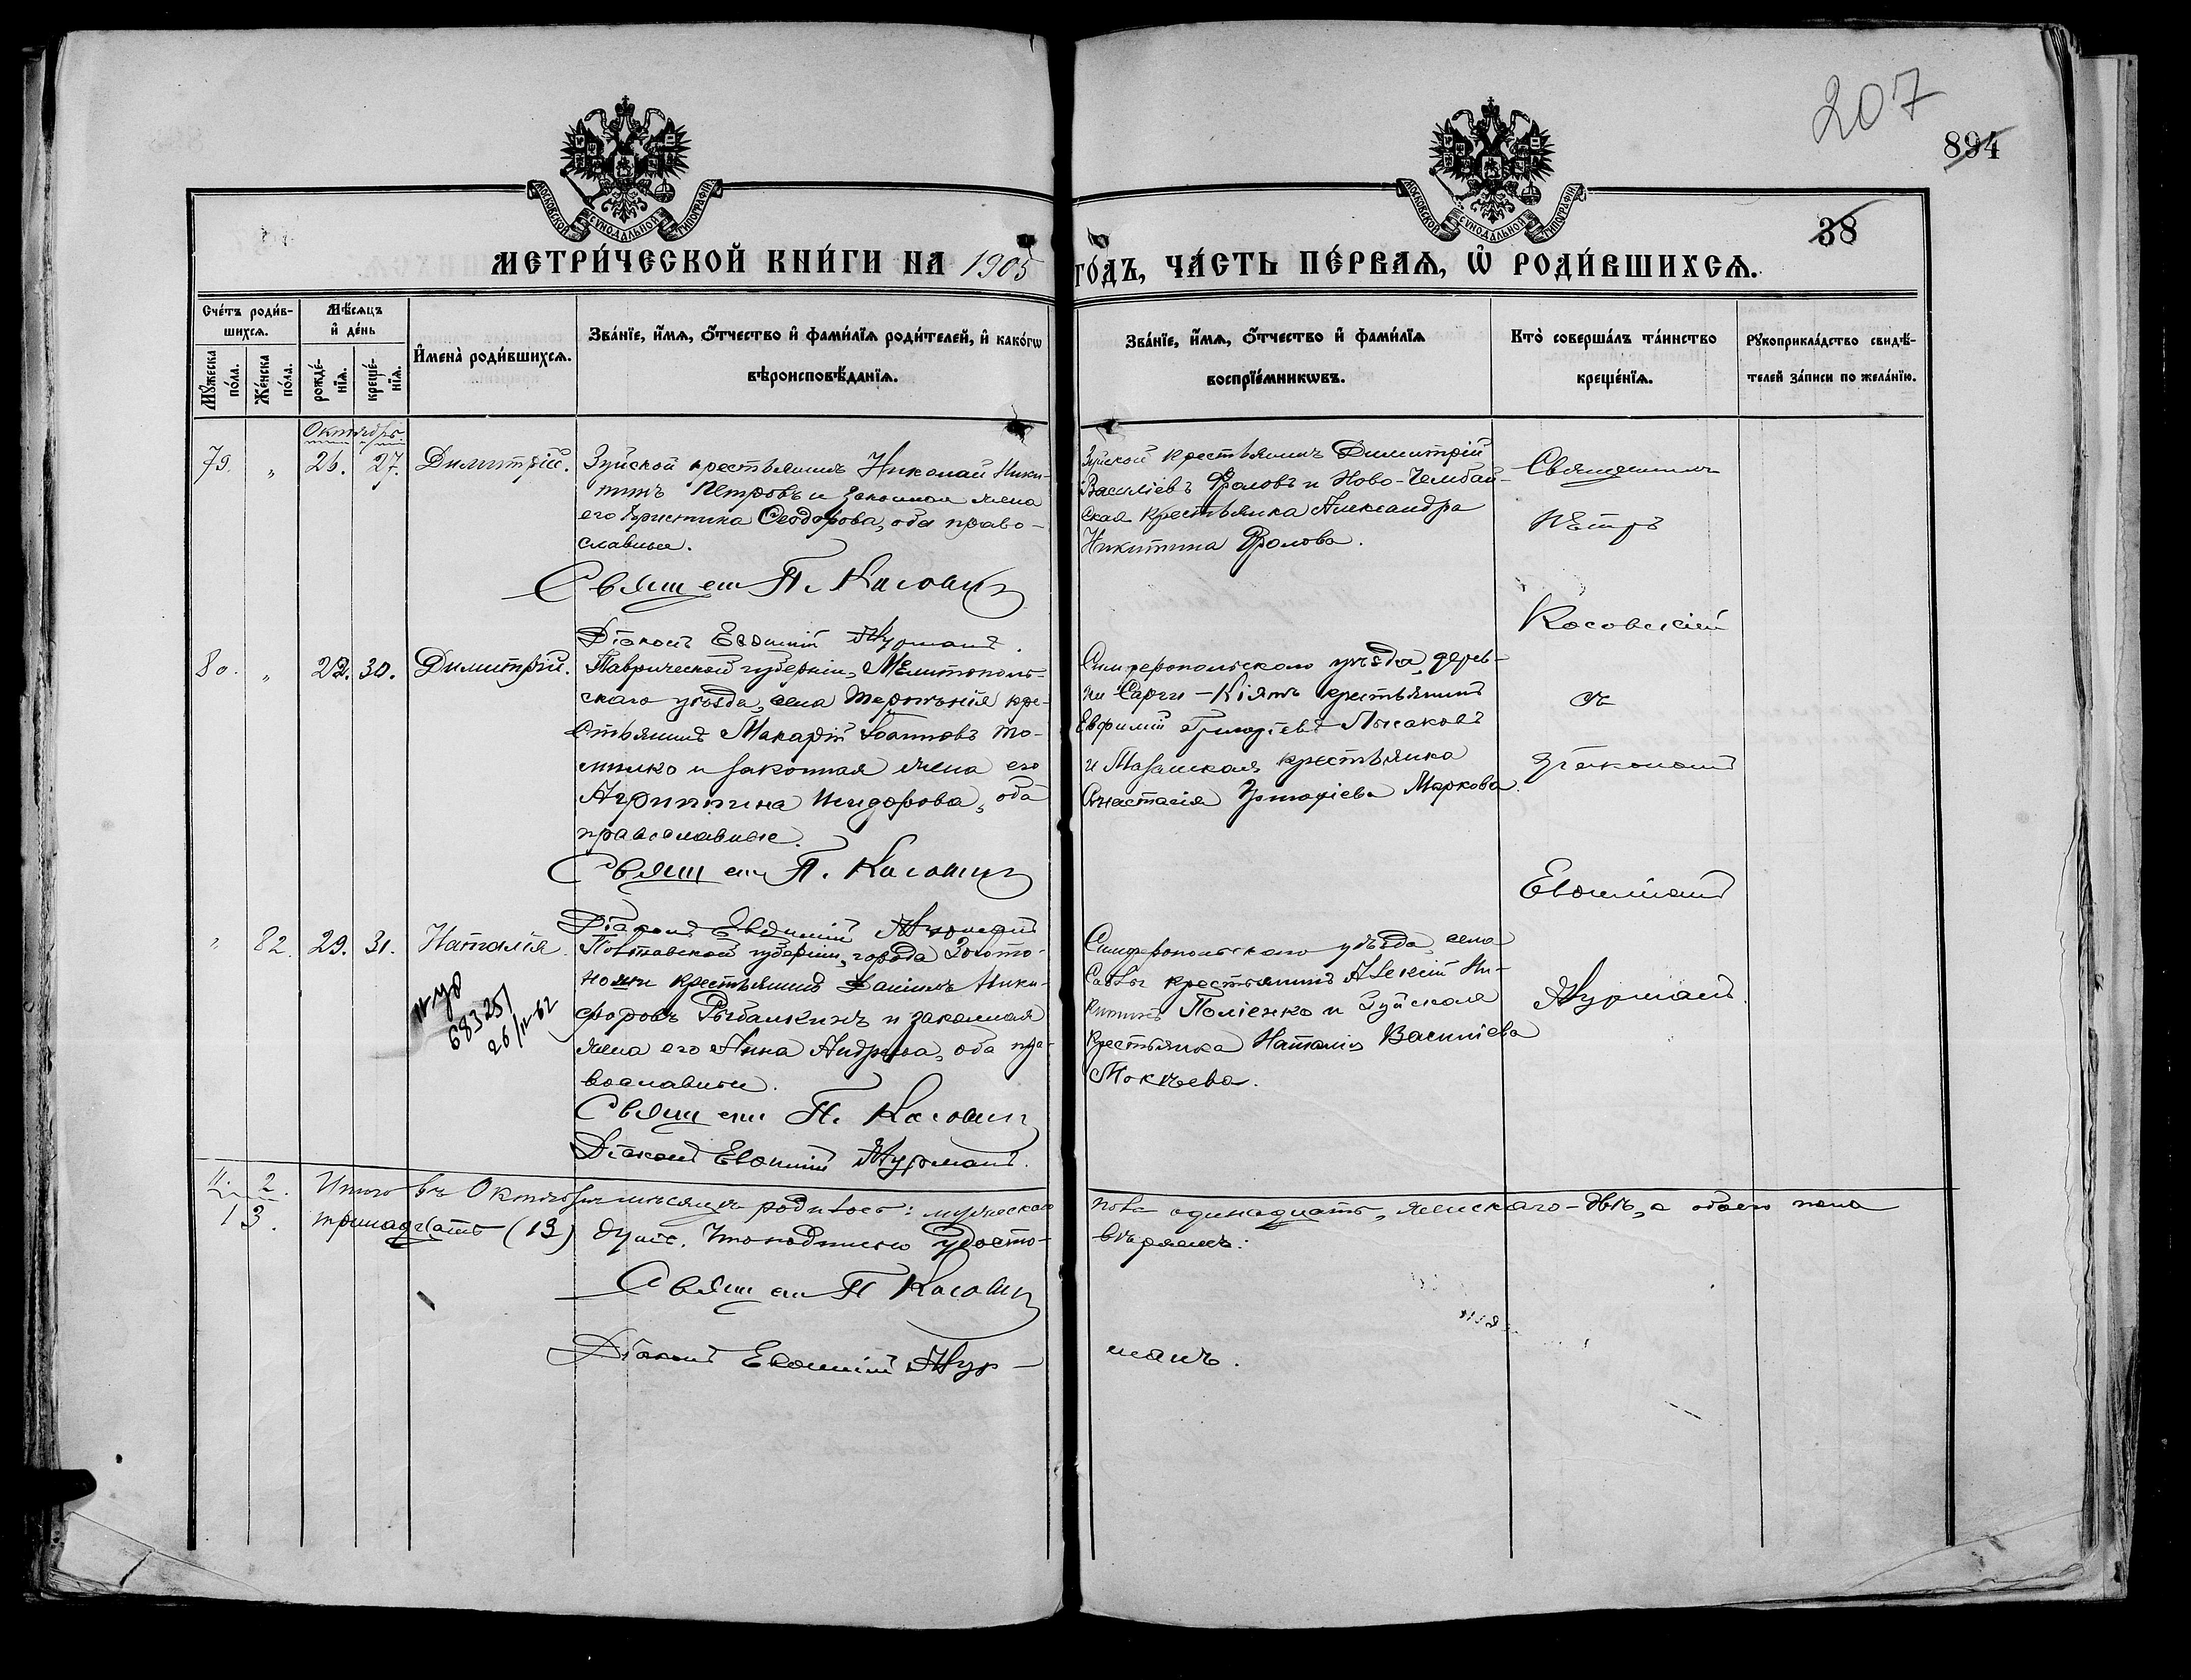 207
894
38
МОСКОВСКОЙ СУНОДАЛЬНОЙ ТИПОГРАФІИ
МОСКОВСКОЙ СУНОДАЛЬНОЙ ТИПОГРАФІИ
МЕТРИ́ЧЕСКОЙ КНИ́ГИ НА 1905 ГО́ДЪ, ЧА́СТЬ ПЕ́РВАѦ, Ѡ҆ РОДИ́ВШИХСѦ.
Сче́тъ роди́в-
шихсѧ.
Мꙋ́жеска по́ла.
Же́нска по́ла.
Мѣ́сѧцъ
и҆ де́нь
рожде́-
нїѧ.
креще́-
нїѧ.
И҆мена̀ роди́вшихсѧ.
Зва́нїе, и҆́мѧ, ѻ҆́тчество и҆ фами́лїѧ роди́телей, и҆ како́гѡ
вѣроисповѣ́данїѧ.
Зва́нїе, и҆́мѧ, ѻ҆́тчество и҆ фами́лїѧ
воспрїе́мникѡвъ.
Кто̀ соверша́лъ та́инство
креще́нїѧ.
Рꙋкоприкла́дство свидѣ́-
телей за́писи по жела́нїю.
Октябрь.
79. " 26. 27. Димитрій.
Зуйской крестьянинъ Николай Ники-
тинъ Петровъ и законная жена
его Христина Ѳеодорова, оба право-
славные.
Свящ ен П. Касовскій
Діаконъ Евѳимій Журманъ.
Зуйской крестьянинъ Димитрій
Василіевъ Фроловъ и Ново-Чембай-
ская крестьянка Александра
Никитина Фролова.
Священникъ
Петръ
Косовскій
съ
діакономъ
Евѳиміемъ
Журманъ.
80. " 22. 30. Димитрій.
Таврической губерніи, Мелитополь-
скаго уѣзда, села Терпѣнія кре-
стьянинъ Макарій Іоанновъ То-
милко и законная жена его
Агриппина Исидорова, оба
православные.
Свящ ен П. Касовскій
Діаконъ Евѳимій Журманъ
Симферопольскаго уѣзда, дерев-
ни Сарчи-Кіятъ крестьянинъ
Евфимій Григоріевъ Лысаковъ
и Мазанская крестьянка
Анастасія Григоріева Маркова.
" 82. 29. 31. Наталія.
68325
26/IV-62
Полтавской губерніи, города Золото-
ноши крестьянинъ Даніилъ Ники-
форовъ Рыбалкинъ и законная
жена его Анна Андреева, оба пра-
вославные.
Свящ ен П. Касовскій
Діаконъ Евѳимій Журманъ.
Симферопольскаго уѣзда, села
Саблы крестьянинъ Алексій Ни-
китинъ Поліенко и Зуйская
крестьянка Наталія Василіева
Мокѣева.
11. 2.
13.
Итого въ Октябрѣ мѣсяцѣ родилось: мужескаго пола одинадцать, женскаго-двѣ, а обоего пола
тринадцать (13) душъ. Что подписью удосто-
вѣряемъ:
Свящ ен П Касовскій
Діаконъ Евѳимій Жур-
манъ.